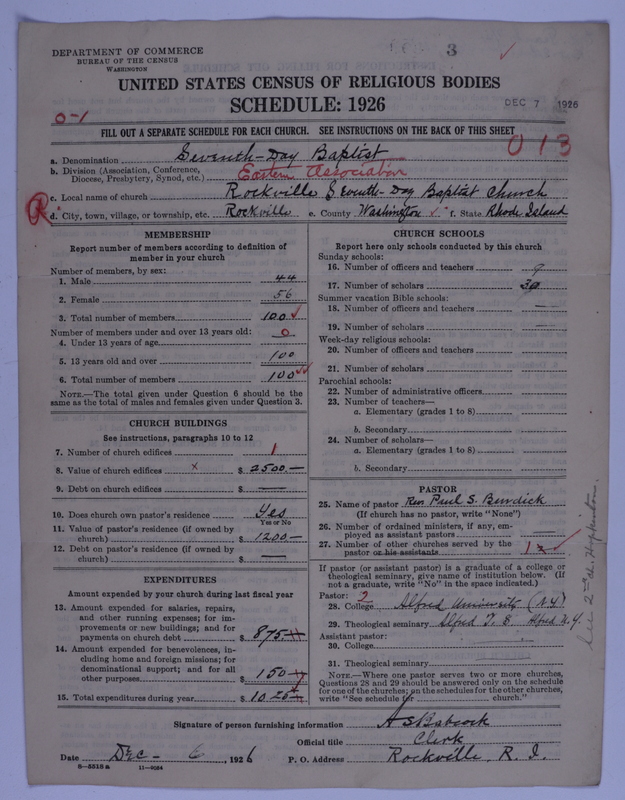 3
DEPARTMENT OF COMMERCE
BUREAU OF THE CENSUS
WASHINGTON
UNITED STATES CENSUS OF RELIGIOUS BODIES
SCHEDULE: 1926
DEC 7 1926
0-1
FILL OUT A SEPARATE SCHEDULE FOR EACH CHURCH. SEE INSTRUCTIONS ON THE BACK OF THIS SHEET
013
a. Denomination Seventh-Day Baptist
b. Division (Association, Conference, Diocese, Presbytery, Synod, etc.) Eastern Association
c. Local name of church Rockville Seventh-Day Baptist Church
R d. City, town, village, or township, etc. Rockville e. County Washington f. State Rhode Island
MEMBERSHIP
Report number of members according to definition of
member in your church
Number of members, by sex:
1. Male 44
2. Female 56
3. Total number of members 100
Number of members under and over 13 years old:
4. Under 13 years of age 0
5. 13 years old and over 100
6. Total number of members 100
NOTE.—The total given under Question 6 should be
same as the total of males and females given under Question 3.
CHURCH BUILDINGS
See instructions, paragraphs 10 to 12
7. Number of church edifices 1
8. Value of church edifices x $ 2500.—
9. Debt on church edifices $ —
10. Does church own pastor's residence Yes
Yes or No
11. Value of pastor's residence (if owned by
church) $ 1200—
12. Debt on pastor's residence (if owned by
church) $ —
EXPENDITURES
Amount expended by your church during last fiscal year
13. Amount expended for salaries, repairs,
and other running expenses; for im-
provements or new buildings; and for
payments on church debt $ 875.
14. Amount expended for benevolences, in-
cluding home and foreign missions; for
denominational support; and for all
other purposes $ 150
15. Total expenditures during year $ 1025
CHURCH SCHOOLS
Report here only schools conducted by this church
Sunday schools:
16. Number of officers and teachers 9
17. Number of scholars
Summer vacation Bible schools:
18. Number of officers and teachers —
19. Number of scholars —
Week-day religious schools:
20. Number of officers and teachers
21. Number of scholars
Parochial schools:
22. Number of administrative officers
23. Number of teachers—
a. Elementary (grades 1 to 8)
b. Secondary
24. Number of scholars—
a. Elementary (grades 1 to 8)
b. Secondary
PASTOR
25. Name of pastor Rev Paul S. Burdick
(If church has no pastor, write "None")
26. Number of ordained ministers, if any, em-
ployed as assistant pastors —
27. Number of other churches served by the
pastor or his assistants 1
If pastor (or assistant pastor) is a graduate of a college or
theological seminary, give name of institution below. (If
not a graduate, write "No" in the space indicated.)
Pastor: 2
28. College Alfred University (N.Y.)
29. Theological seminary Alfred T. S. Alfred N.Y.
Assistant pastor:
30. College
31. Theological seminary
NOTE.—Where one pastor serves two or more churches,
Questions 28 and 29 should be answered only on the schedule
for one of the churches; on the schedules for the other churches,
write "See schedule for church."
See 2nd ch. Hopkinton.
Signature of person furnishing information A S Babcock
Official title Clerk
Date Dec - 6, 1926 P. O. Address Rockville, R. I.
8—5518 a 11—9034